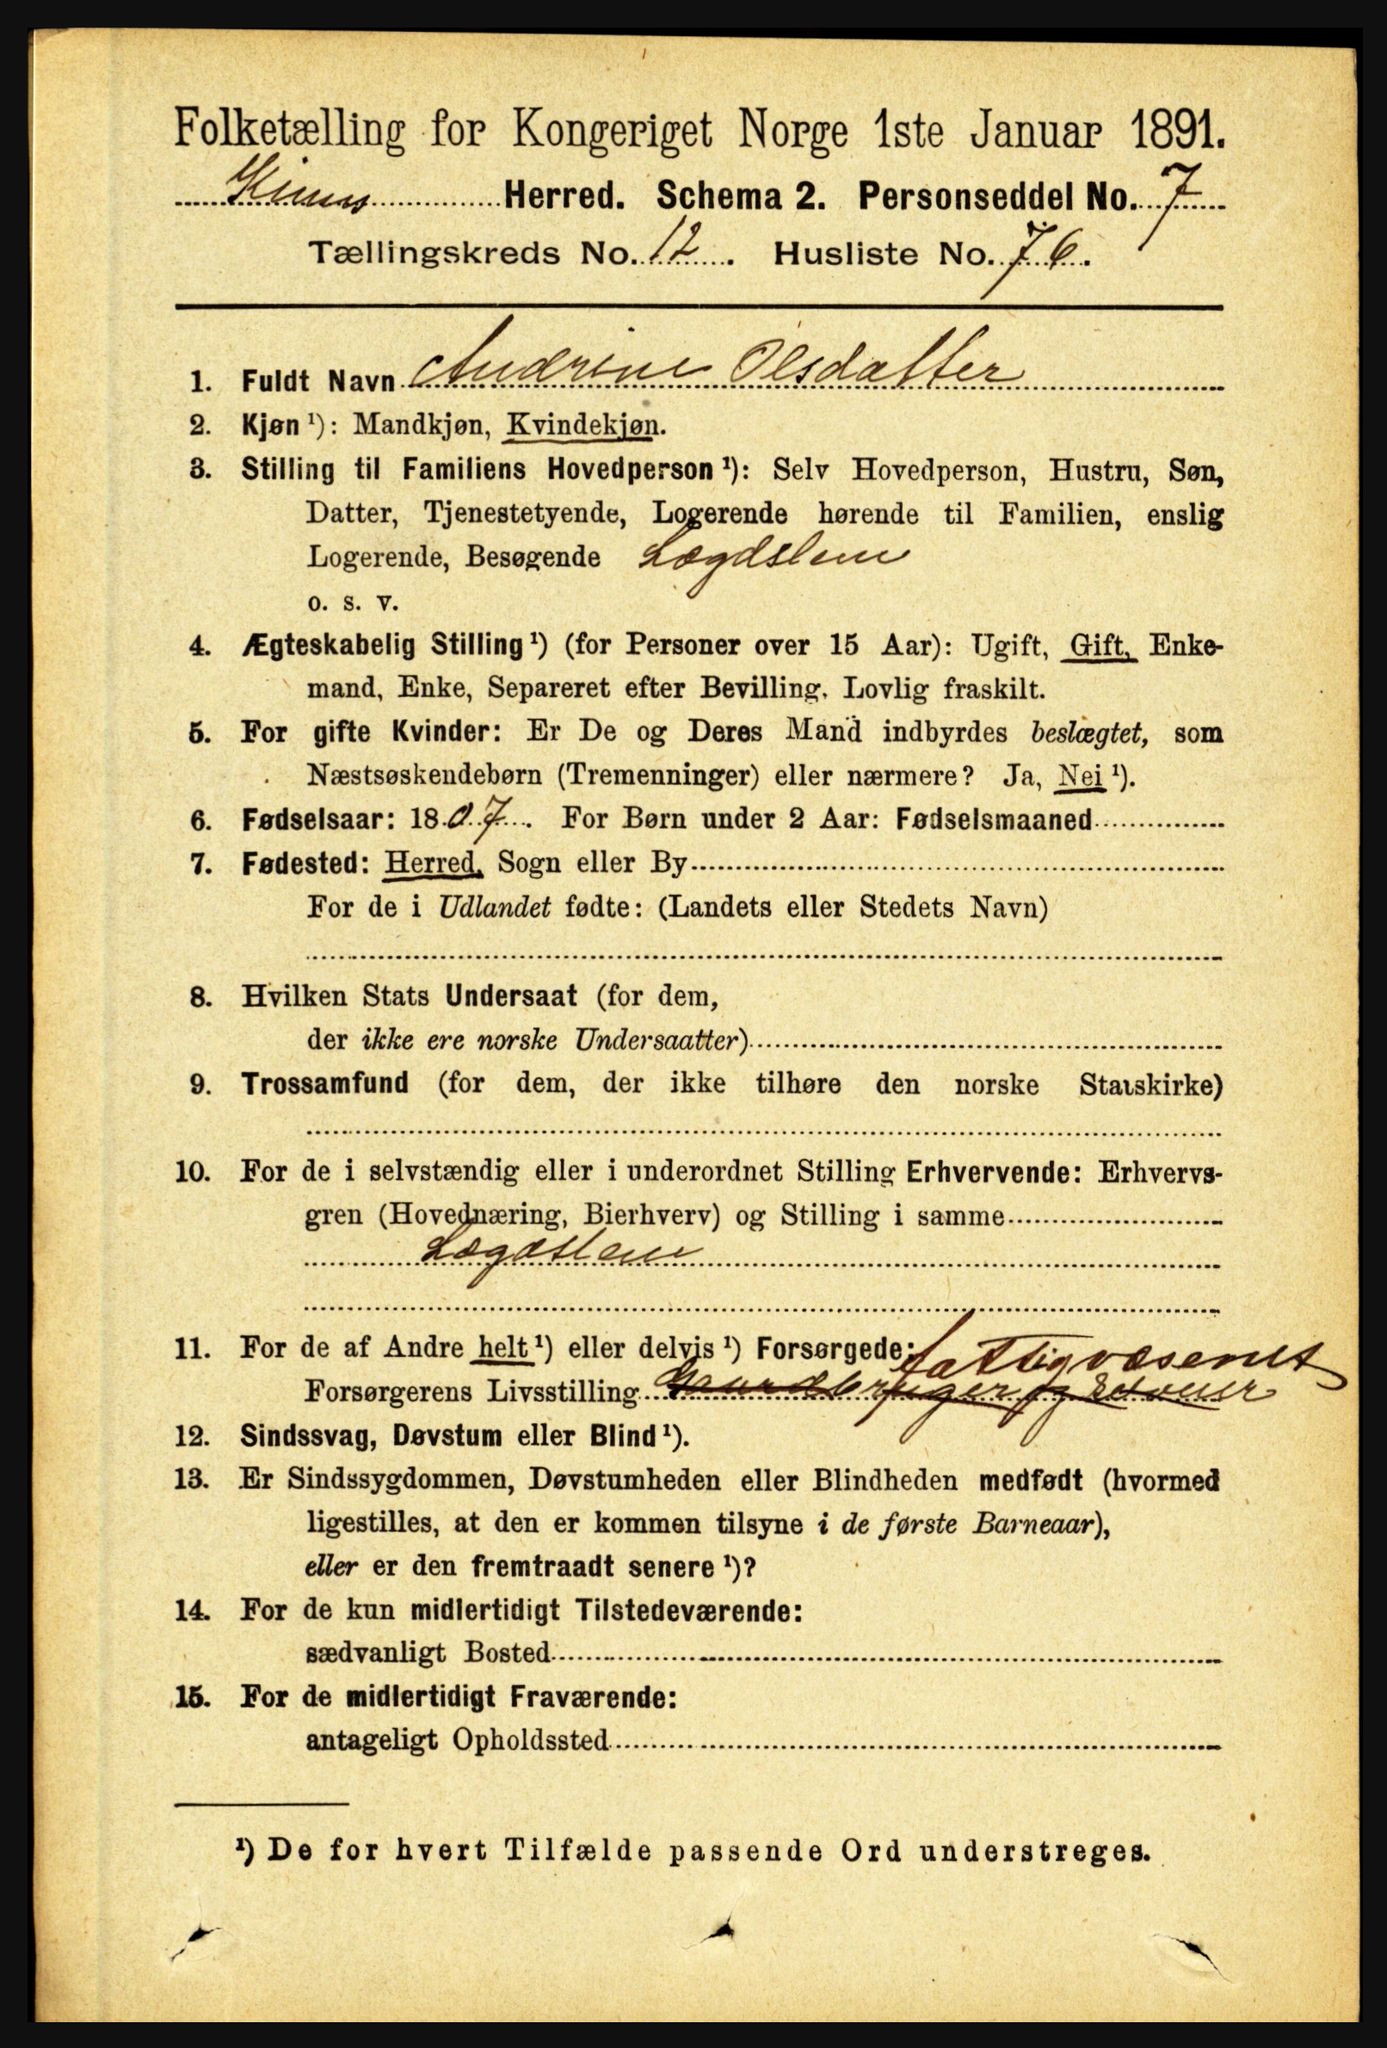 Folketælling for Kongeriget Norge 1ste Januar 1891.
Kinns Herred. Schema 2. Personseddel No. 7
Tællingskreds No. 12. Husliste No. 76.
1. Fuldt Navn Andrine Olsdatter
2. Kjøn ¹): Mandkjøn, Kvindekjøn.
3. Stilling til Familiens Hovedperson ¹): Selv Hovedperson, Hustru, Søn,
Datter, Tjenestetyende, Logerende hørende til Familien, enslig
Logerende, Besøgende Lægdslem
o. s. v.
4. Ægteskabelig Stilling ¹) (for Personer over 15 Aar): Ugift, Gift, Enke-
mand, Enke, Separeret efter Bevilling. Lovlig fraskilt.
5. For gifte Kvinder: Er De og Deres Mand indbyrdes beslægtet, som
Næstsøskendebørn (Tremenninger) eller nærmere? Ja, Nei ¹).
6. Fødselsaar: 1807. For Børn under 2 Aar: Fødselsmaaned
7. Fødested: Herred, Sogn eller By
For de i Udlandet fødte: (Landets eller Stedets Navn)
8. Hvilken Stats Undersaat (for dem,
der ikke ere norske Undersaatter)
9. Trossamfund (for dem, der ikke tilhøre den norske Statskirke)
10. For de i selvstændig eller i underordnet Stilling Erhvervende: Erhvervs-
gren (Hovednæring, Bierhverv) og Stilling i samme
Lægdslem
11. For de af Andre helt ¹) eller delvis ¹) Forsørgede: fattigvæsenet
Forsørgerens Livsstilling Gaardbruger og
12. Sindssvag, Døvstum eller Blind ¹).
13. Er Sindssygdommen, Døvstumheden eller Blindheden medfødt (hvormed
ligestilles, at den er kommen tilsyne i de første Barneaar),
eller er den fremtraadt senere ¹)?
14. For de kun midlertidigt Tilstedeværende:
sædvanligt Bosted
15. For de midlertidigt Fraværende:
antageligt Opholdssted
¹) De for hvert Tilfælde passende Ord understreges.